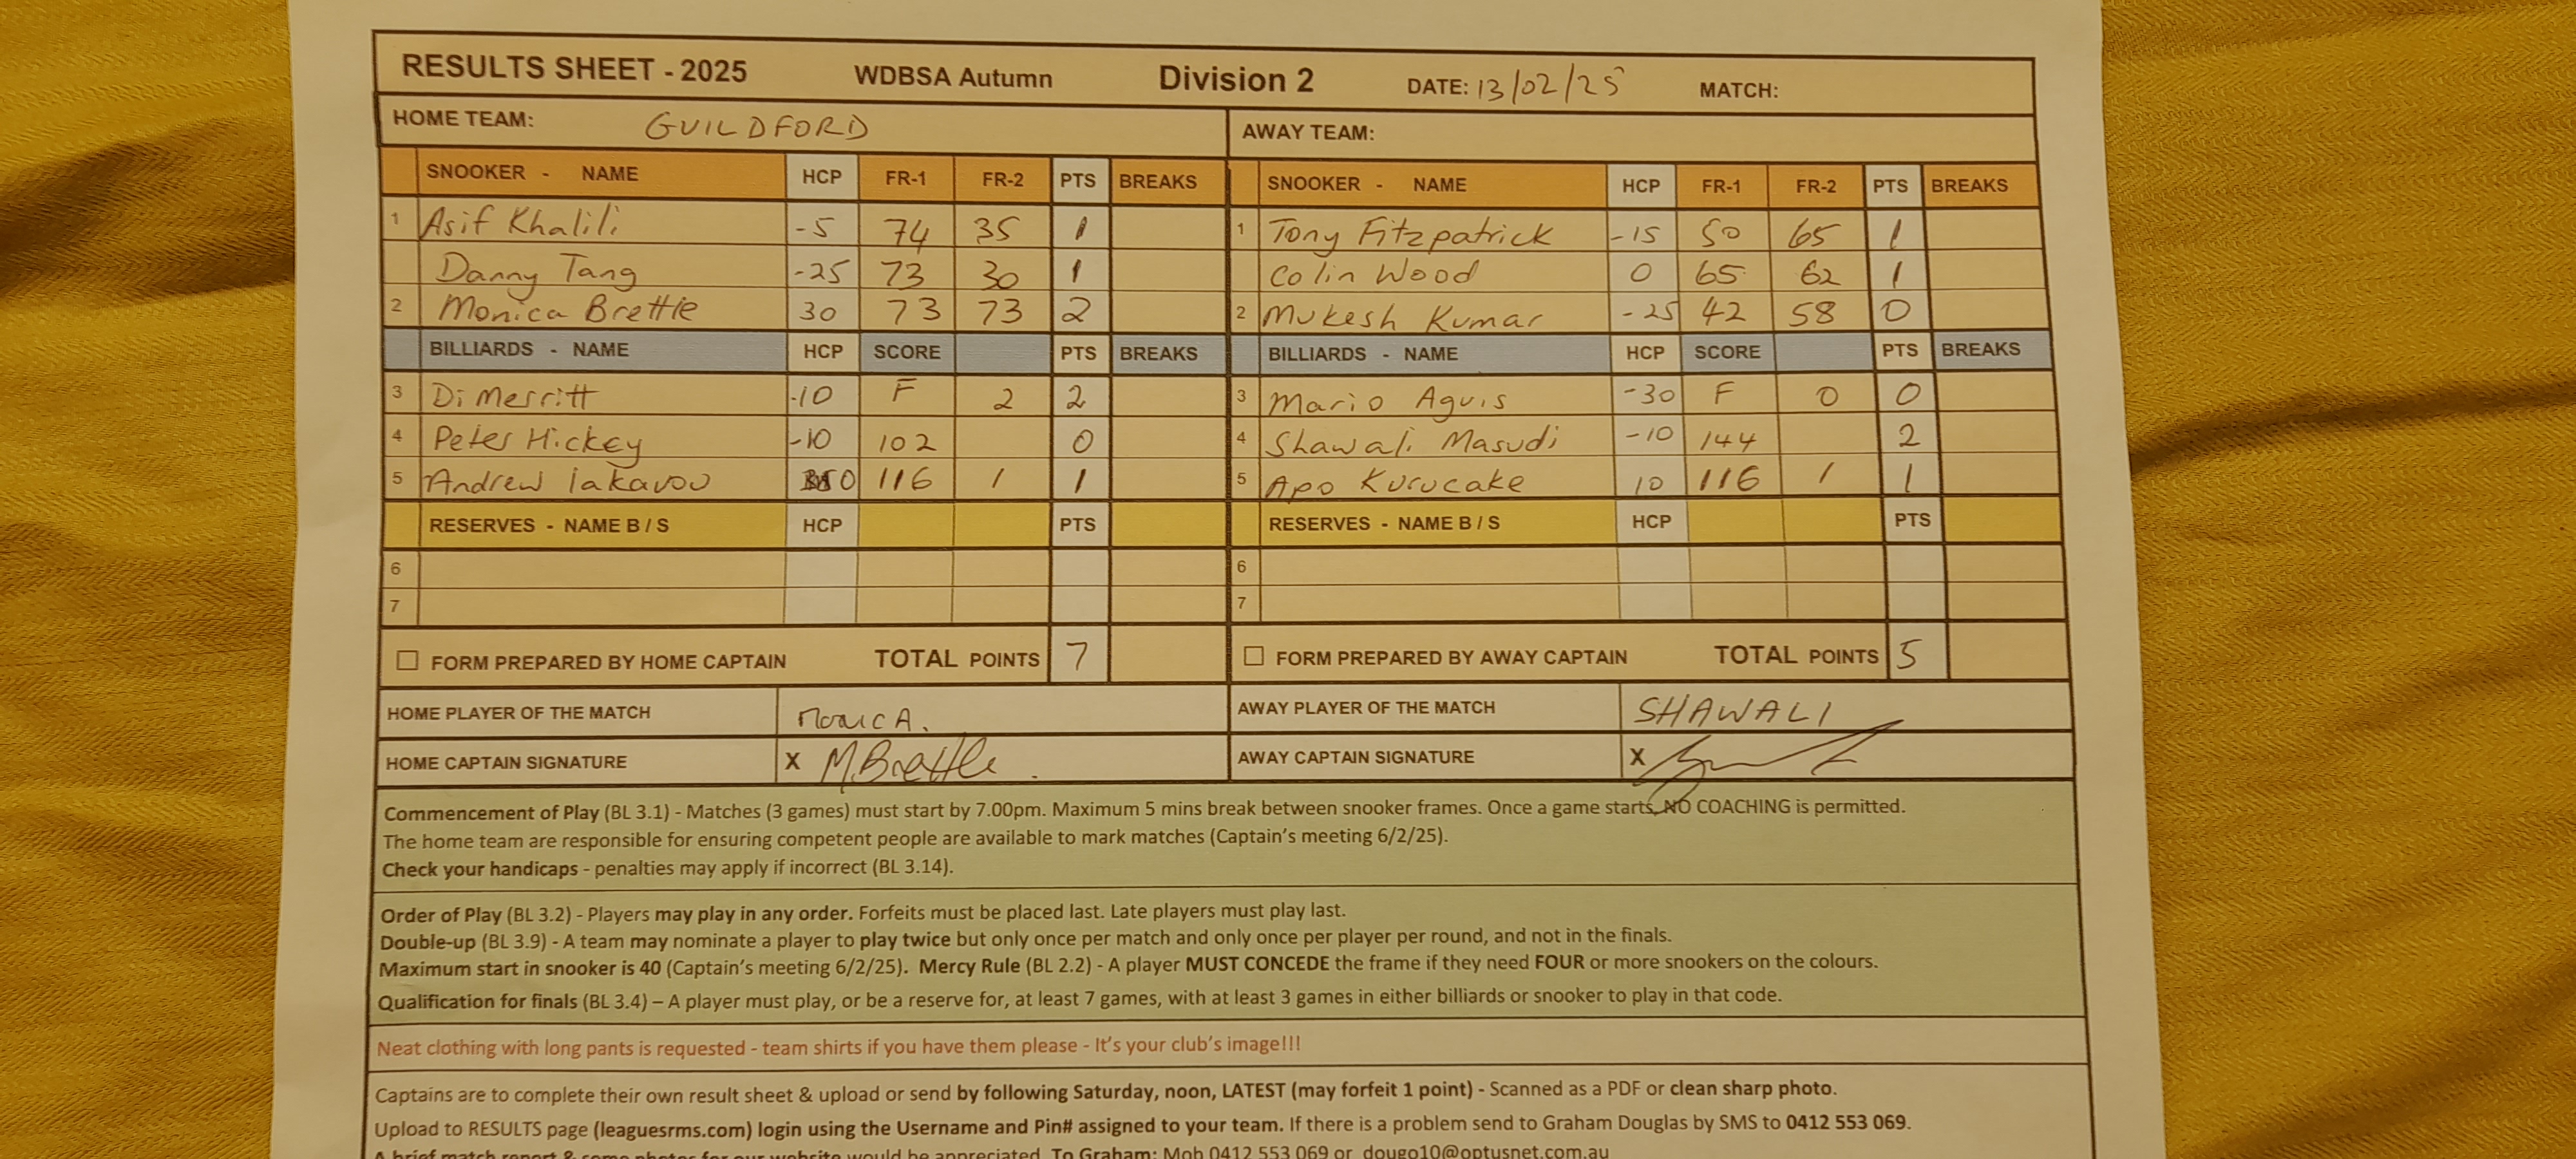 RESULTS SHEET - 2025 WDBSA Autumn Division 2 DATE: 13/02/25 MATCH:
HOME TEAM: GUILDFORD AWAY TEAM:
SNOOKER - NAME HCP FR-1 FR-2 PTS BREAKS SNOOKER - NAME HCP FR-1 FR-2 PTS BREAKS
1 Asif Khalili -5 74 35 1 1 Tony Fitzpatrick -15 50 65 1
Danny Tang -25 73 30 1 Colin Wood 0 65 62 1
2 Monica Brettle 30 73 73 2 2 Mukesh Kumar -25 42 58 0
BILLIARDS - NAME HCP SCORE PTS BREAKS BILLIARDS - NAME HCP SCORE PTS BREAKS
3 Di Merritt -10 F 2 2 3 Mario Aguis -30 F 0 0
4 Peter Hickey -10 102 0 4 Shawali Masudi -10 144 2
5 Andrew Iakavou 0 116 1 1 5 Apo Kurucake 10 116 1 1
RESERVES - NAME B / S HCP PTS RESERVES - NAME B / S HCP PTS
6 6
7 7
FORM PREPARED BY HOME CAPTAIN TOTAL POINTS 7 FORM PREPARED BY AWAY CAPTAIN TOTAL POINTS 5
HOME PLAYER OF THE MATCH MONICA. AWAY PLAYER OF THE MATCH SHAWALI
HOME CAPTAIN SIGNATURE X M.Brettle. AWAY CAPTAIN SIGNATURE X
Commencement of Play (BL 3.1) - Matches (3 games) must start by 7.00pm. Maximum 5 mins break between snooker frames. Once a game starts, NO COACHING is permitted.
The home team are responsible for ensuring competent people are available to mark matches (Captain's meeting 6/2/25).
Check your handicaps - penalties may apply if incorrect (BL 3.14).
Order of Play (BL 3.2) - Players may play in any order. Forfeits must be placed last. Late players must play last.
Double-up (BL 3.9) - A team may nominate a player to play twice but only once per match and only once per player per round, and not in the finals.
Maximum start in snooker is 40 (Captain's meeting 6/2/25). Mercy Rule (BL 2.2) - A player MUST CONCEDE the frame if they need FOUR or more snookers on the colours.
Qualification for finals (BL 3.4) – A player must play, or be a reserve for, at least 7 games, with at least 3 games in either billiards or snooker to play in that code.
Neat clothing with long pants is requested - team shirts if you have them please - It's your club's image!!!
Captains are to complete their own result sheet & upload or send by following Saturday, noon, LATEST (may forfeit 1 point) - Scanned as a PDF or clean sharp photo.
Upload to RESULTS page (leaguesrms.com) login using the Username and Pin# assigned to your team. If there is a problem send to Graham Douglas by SMS to 0412 553 069.
A brief match report & some photos for our website would be appreciated. To Graham: Mob 0412 553 069 or dougo10@optusnet.com.au